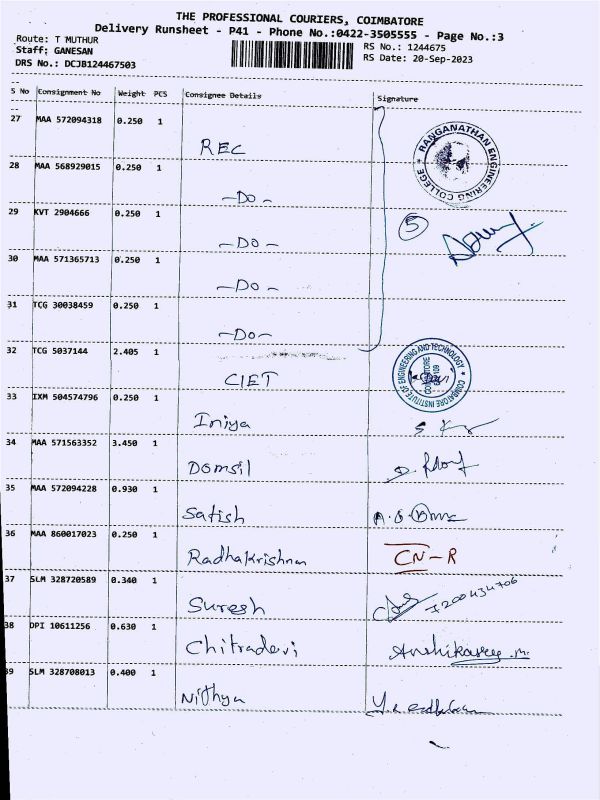 THE PROFESSIONAL COURIERS, COIMBATORE
Delivery Runsheet - P41 - Phone No.:0422-3505555 - Page No.:3
Route: T MUTHUR
Staff: GANESAN
DRS No.: DCJB124467503
RS No.: 1244675
RS Date: 20-Sep-2023
S No Consignment No Weight PCS Consignee Details Signature
27 MAA 572094318 0.250 1
REC
RANGANATHAN ENGINEERING COLLEGE
28 MAA 568929015 0.250 1
-Do-
29 KVT 2904666 0.250 1
-Do-
5
30 MAA 571365713 0.250 1
-Do-
31 TCG 30038459 0.250 1
-Do-
32 TCG 5037144 2.405 1
CIET
COIMBATORE INSTITUTE OF ENGINEERING AND TECHNOLOGY
33 IXM 504574796 0.250 1
Iniya
34 MAA 571563352 3.450 1
Domsil
35 MAA 572094228 0.930 1
Satish
36 MAA 860017023 0.250 1
Radhakrishnan
CN-R
37 SLM 328720589 0.340 1
Suresh
7200434706
38 DPI 10611256 0.630 1
Chitradevi
39 SLM 328708013 0.400 1
Nithya